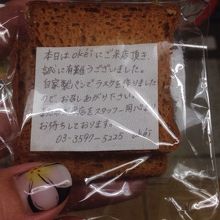 本日は okei にご来店頂き、
誠に有難うございました。
自家製パンでラスクを作りました
お召しあがり下さい。
スタッフ一同
お待ちしております。
03-3597-5225 okei